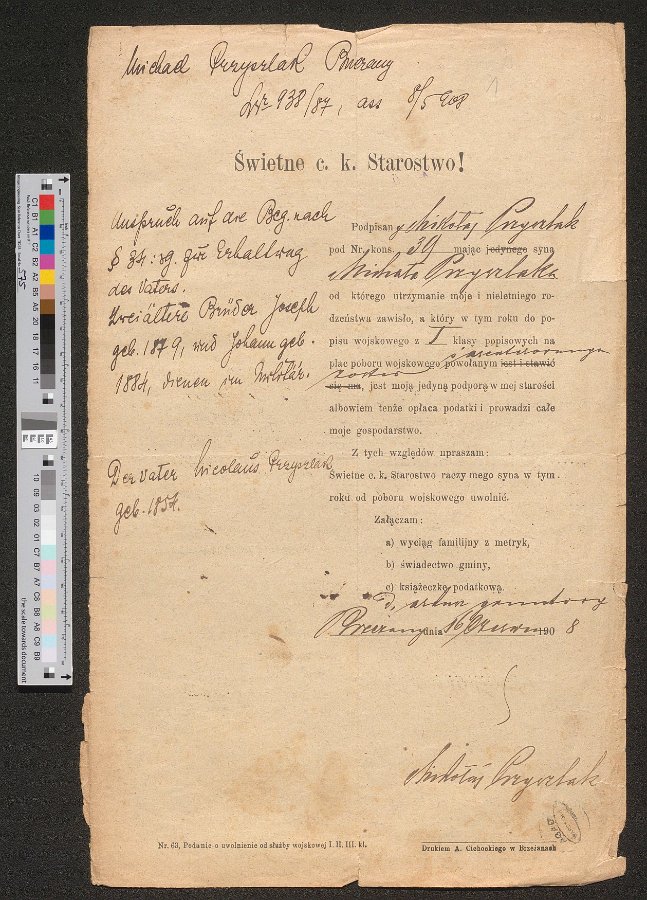 Michael Przyszlak Bnerany
938/87, ass 8/5 908
1
Świetne c. k. Starostwo!
Anspruch auf die Beg. nach
§ 34: zur Erhaltung
des Vaters.
Zwei ältere Brüder Joseph
geb. 1879, und Johann geb.
1884, dienen im Militär.
Der Vater Nicolaus Przyszlak
geb. 1854.
Podpisany Mikołaj Przyszlak
pod Nr. kons. mając jedynego syna
Michała Przyszlaka
od którego utrzymanie moje i nieletniego ro-
dzeństwa zawisło, a który w tym roku do po-
pisu wojskowego z I klasy popisowych na
plac poboru wojskowego powołanym jest i stawić
się ma, jest moją jedyną podporą w mej starości
albowiem tenże opłaca podatki i prowadzi całe
moje gospodarstwo.
Z tych względów upraszam:
Świetne c. k. Starostwo raczy mego syna w tym
roku od poboru wojskowego uwolnić.
Załączam:
a) wyciąg familijny z metryk,
b) świadectwo gminy,
c) książeczkę podatkową.
d,
dnia 16 Czerwca 1908
Mikołaj Przyszlak
Nr. 63, Podanie o uwolnienie od służby wojskowej I. II. III. kl.
Drukiem A. Cichockiego w Brzeżanach
C1 B1 A1 C2 B2 A2 B5 A5 20 18 17 16 11
10 09 03 02 01 C7 B7 A7 C8 B8 A8 C9 B9
the scale towards document